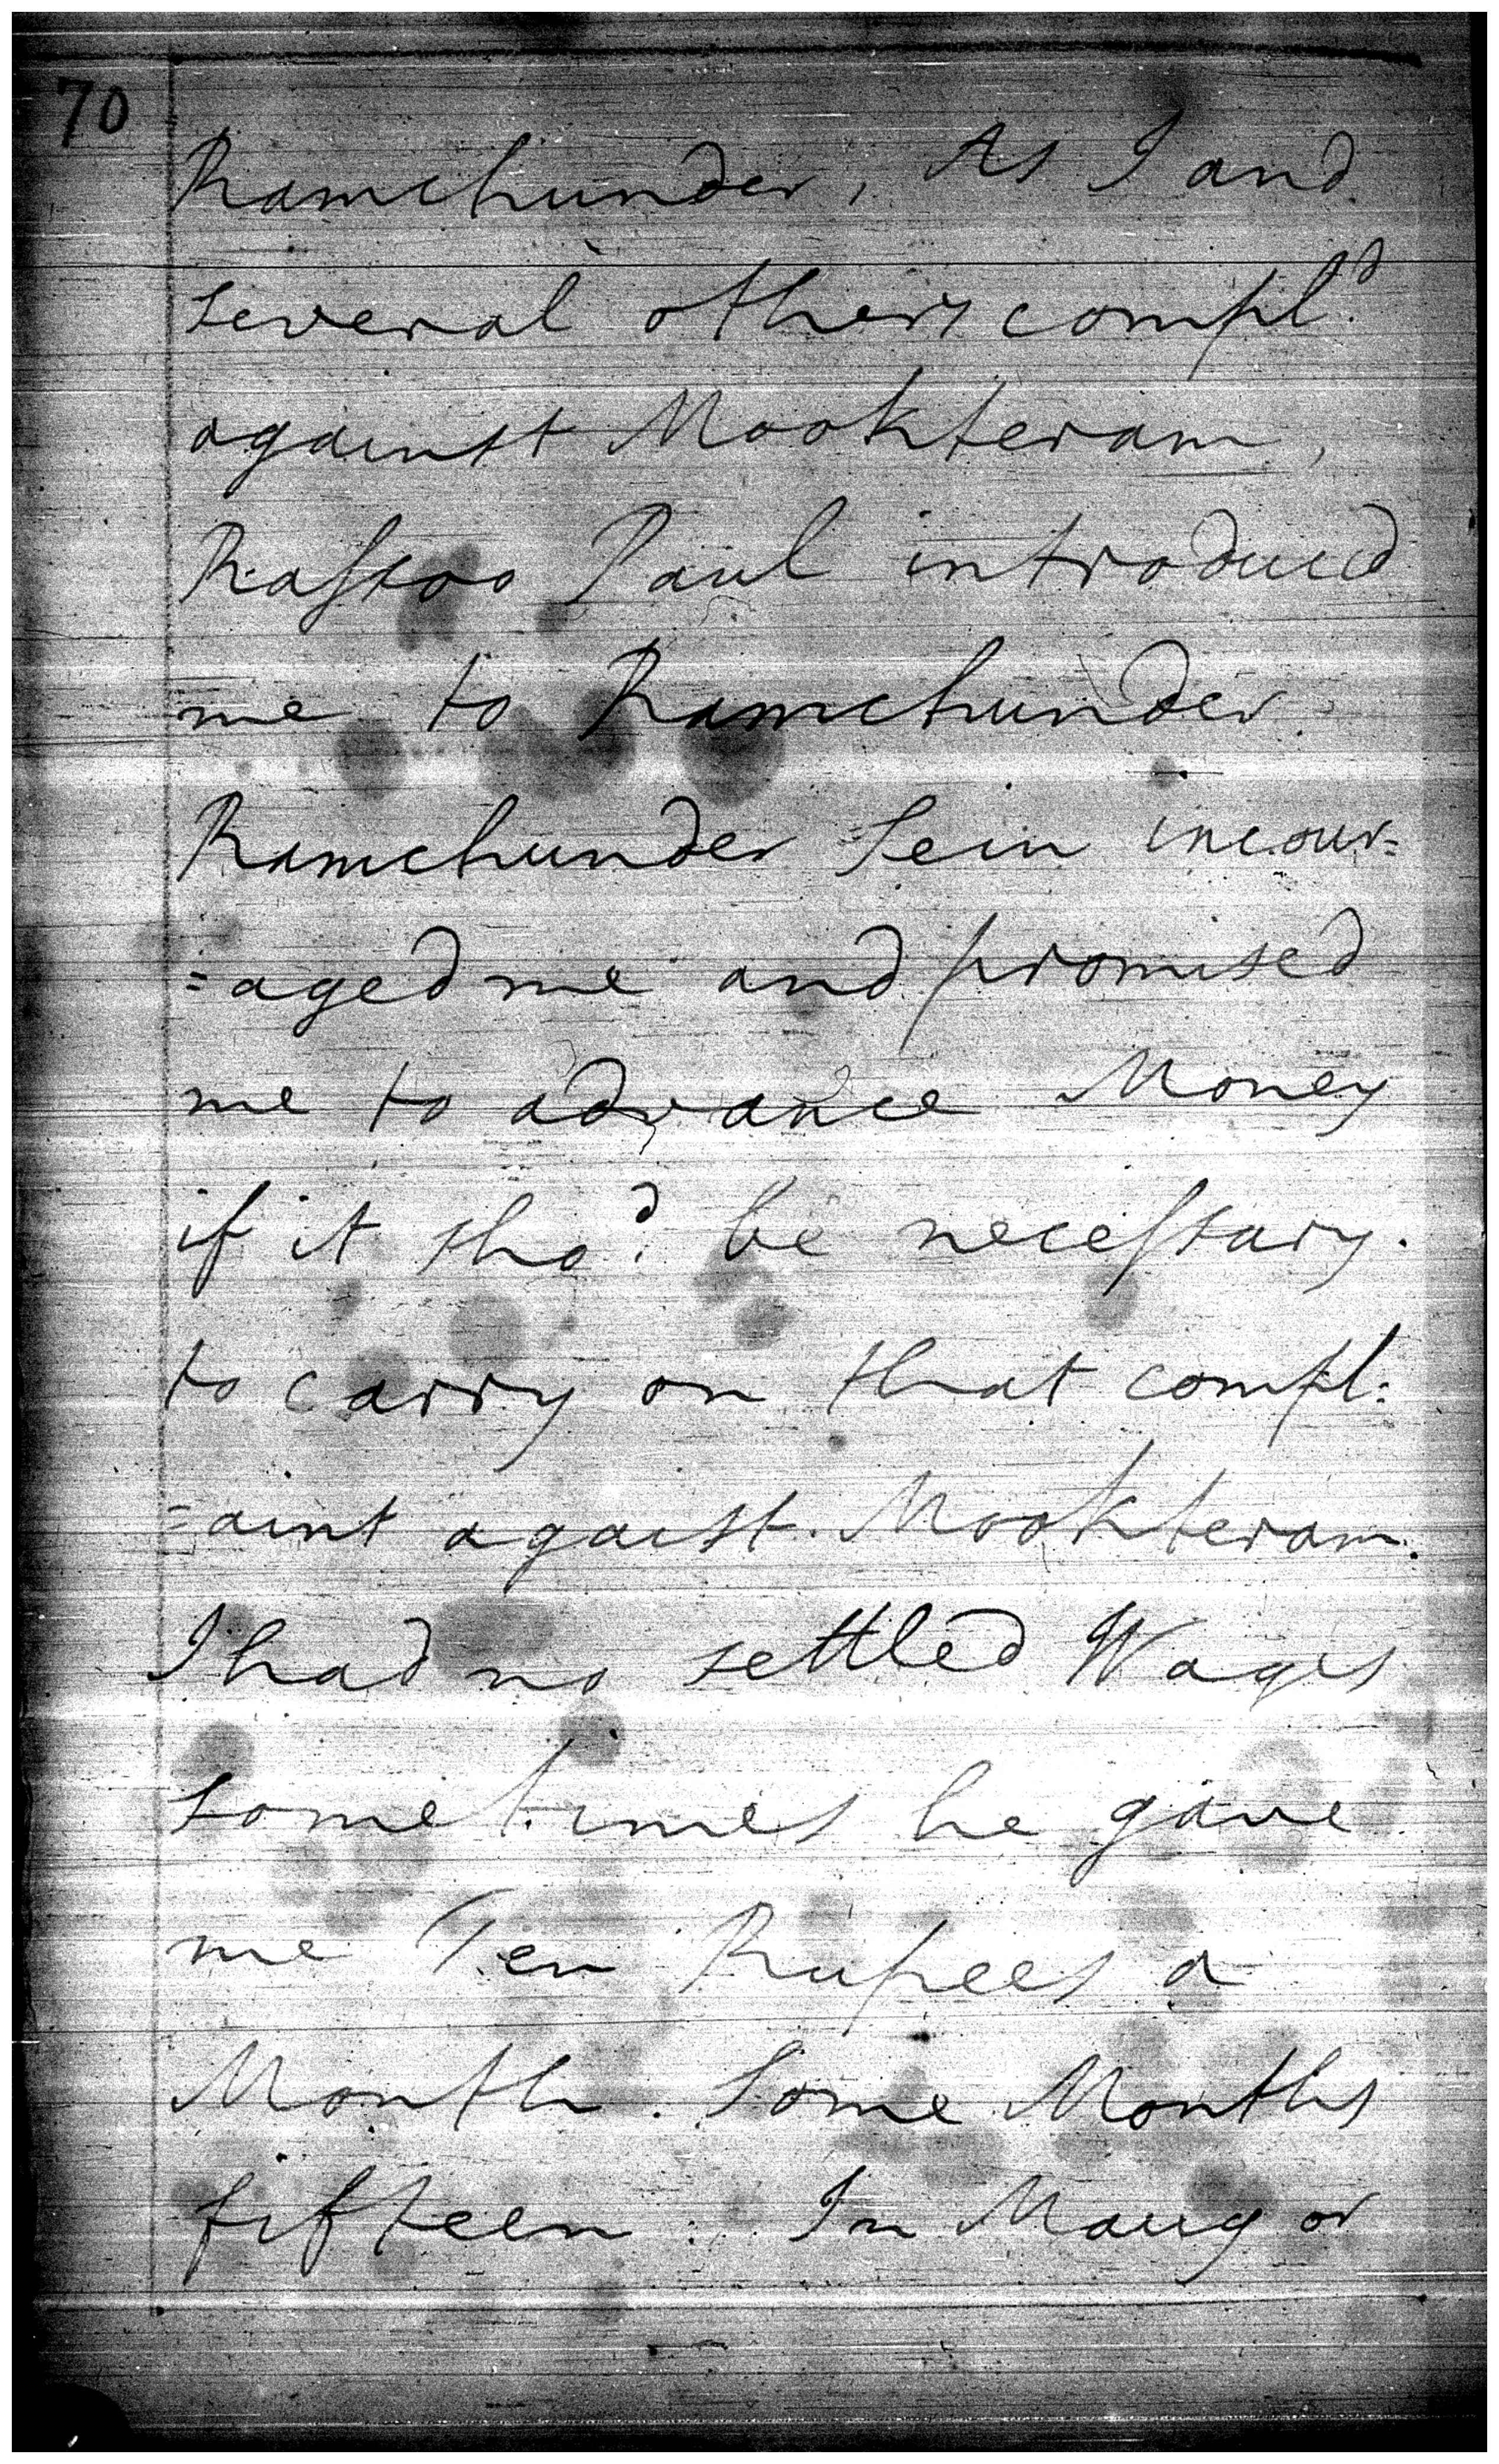 70
Ramchunder, As I and
several others compl.d
against Mookteram,
Rassoo Paul introduced
me to Ramchunder.
Ramchunder Sein incour=
=aged me and promised
me to advance Money
if it sho.d be necessary.
to carry on that compl=
=aint agaist. Mookteram.
I had no settled Wages
sometimes he gave
me Ten Rupees a
Month. Some Months
fifteen. In Maug or